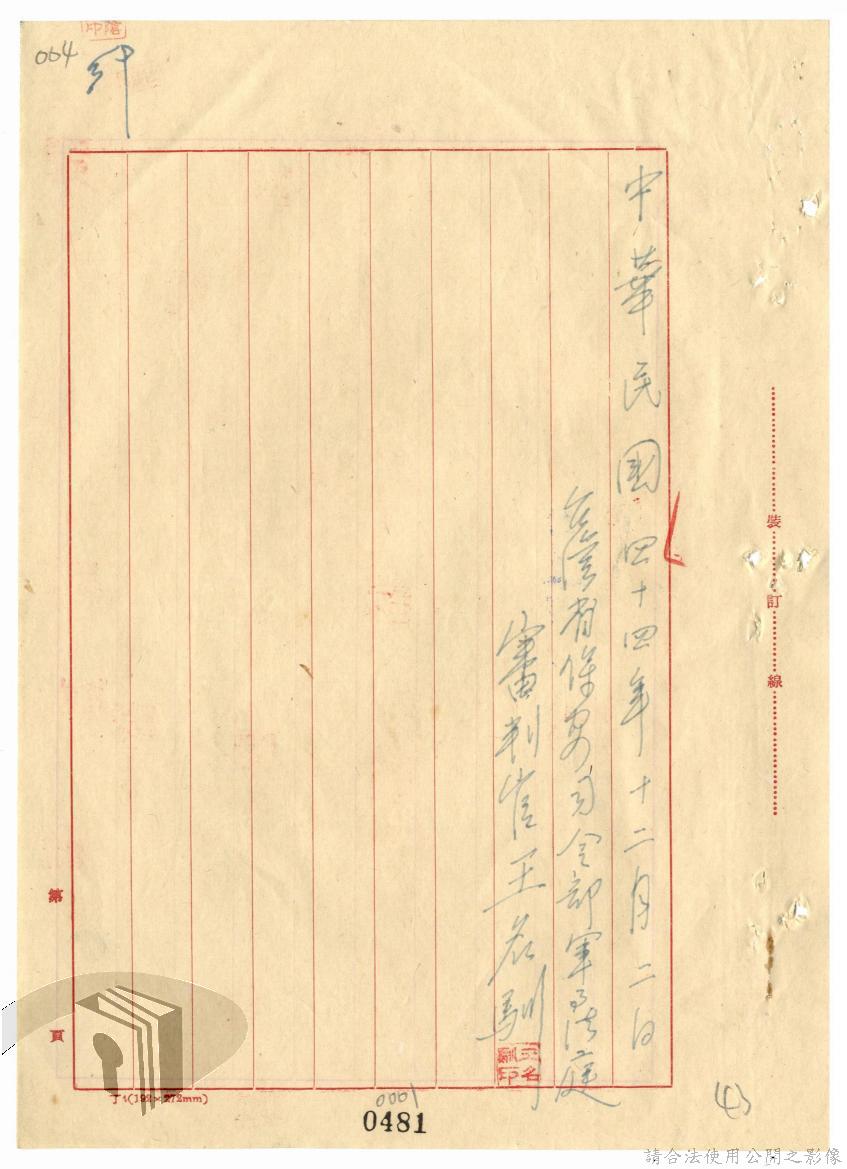 064
中華民國四十四年十二月二日
臺灣省保安司令部軍事法庭
審判官王名馴
王名馴印
裝訂線
第 頁
(192×272mm)
0001
0481
(4)
請合法使用公開之影像